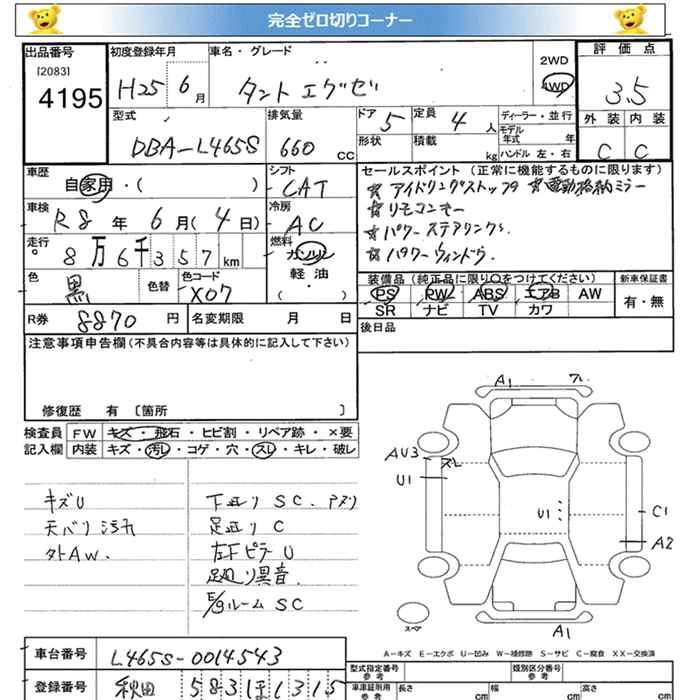 完全ゼロ切りコーナー
出品番号
[2083]
4195
初度登録年月
H25 6月
車名・グレード
タント エグゼ
2WD
4WD
評価点
3.5
外装 内装
C C
型式
DBA-L465S
排気量
660 cc
ドア
5
定員
4 人
ディーラー・並行
モデル年式 年
形状
積載 kg
ハンドル 左・右
車歴
自家用・( )
シフト
CAT
車検
R8 年 6月(4日)
冷房
AC
走行
8万6千357km
燃料
ガソリン
軽油
( ・ )
色
黒
色替
色コード
X07
R券 8870 円
名変期限 月 日
セールスポイント (正常に機能するものに限ります)
☆アイドリングストップ ☆電動格納ミラー
☆リモコンキー
☆パワーステアリング
☆パワーウィンドウ
装備品(純正品に限り○をつけてください)
PS PW ABS エアB AW
SR ナビ TV カワ
新車保証書
有・無
後日品
注意事項申告欄(不具合内容等は具体的に記入して下さい)
修復歴 有 〔箇所 〕
検査員記入欄
FW キズ・飛石・ヒビ割・リペア跡・×要
内装 キズ・汚レ・コゲ・穴・スレ・キレ・破レ
キズU
天バリ汚れ
外AW.
下廻り SC.
足廻り C
左Fピラ U
足廻り異音.
E/gルーム SC
A1
AU3
スレ
U1
U1
C1
A2
A1
スペア
A-キズ E-エクボ U-凹み W-補修跡 S-サビ C-腐食 XX-交換済
車台番号
L465S-0014543
登録番号
秋田 583 ほ 1315
型式指定番号
参考
類別区分番号
参考
車庫証明用
参考
長さ cm
幅 cm
高さ cm